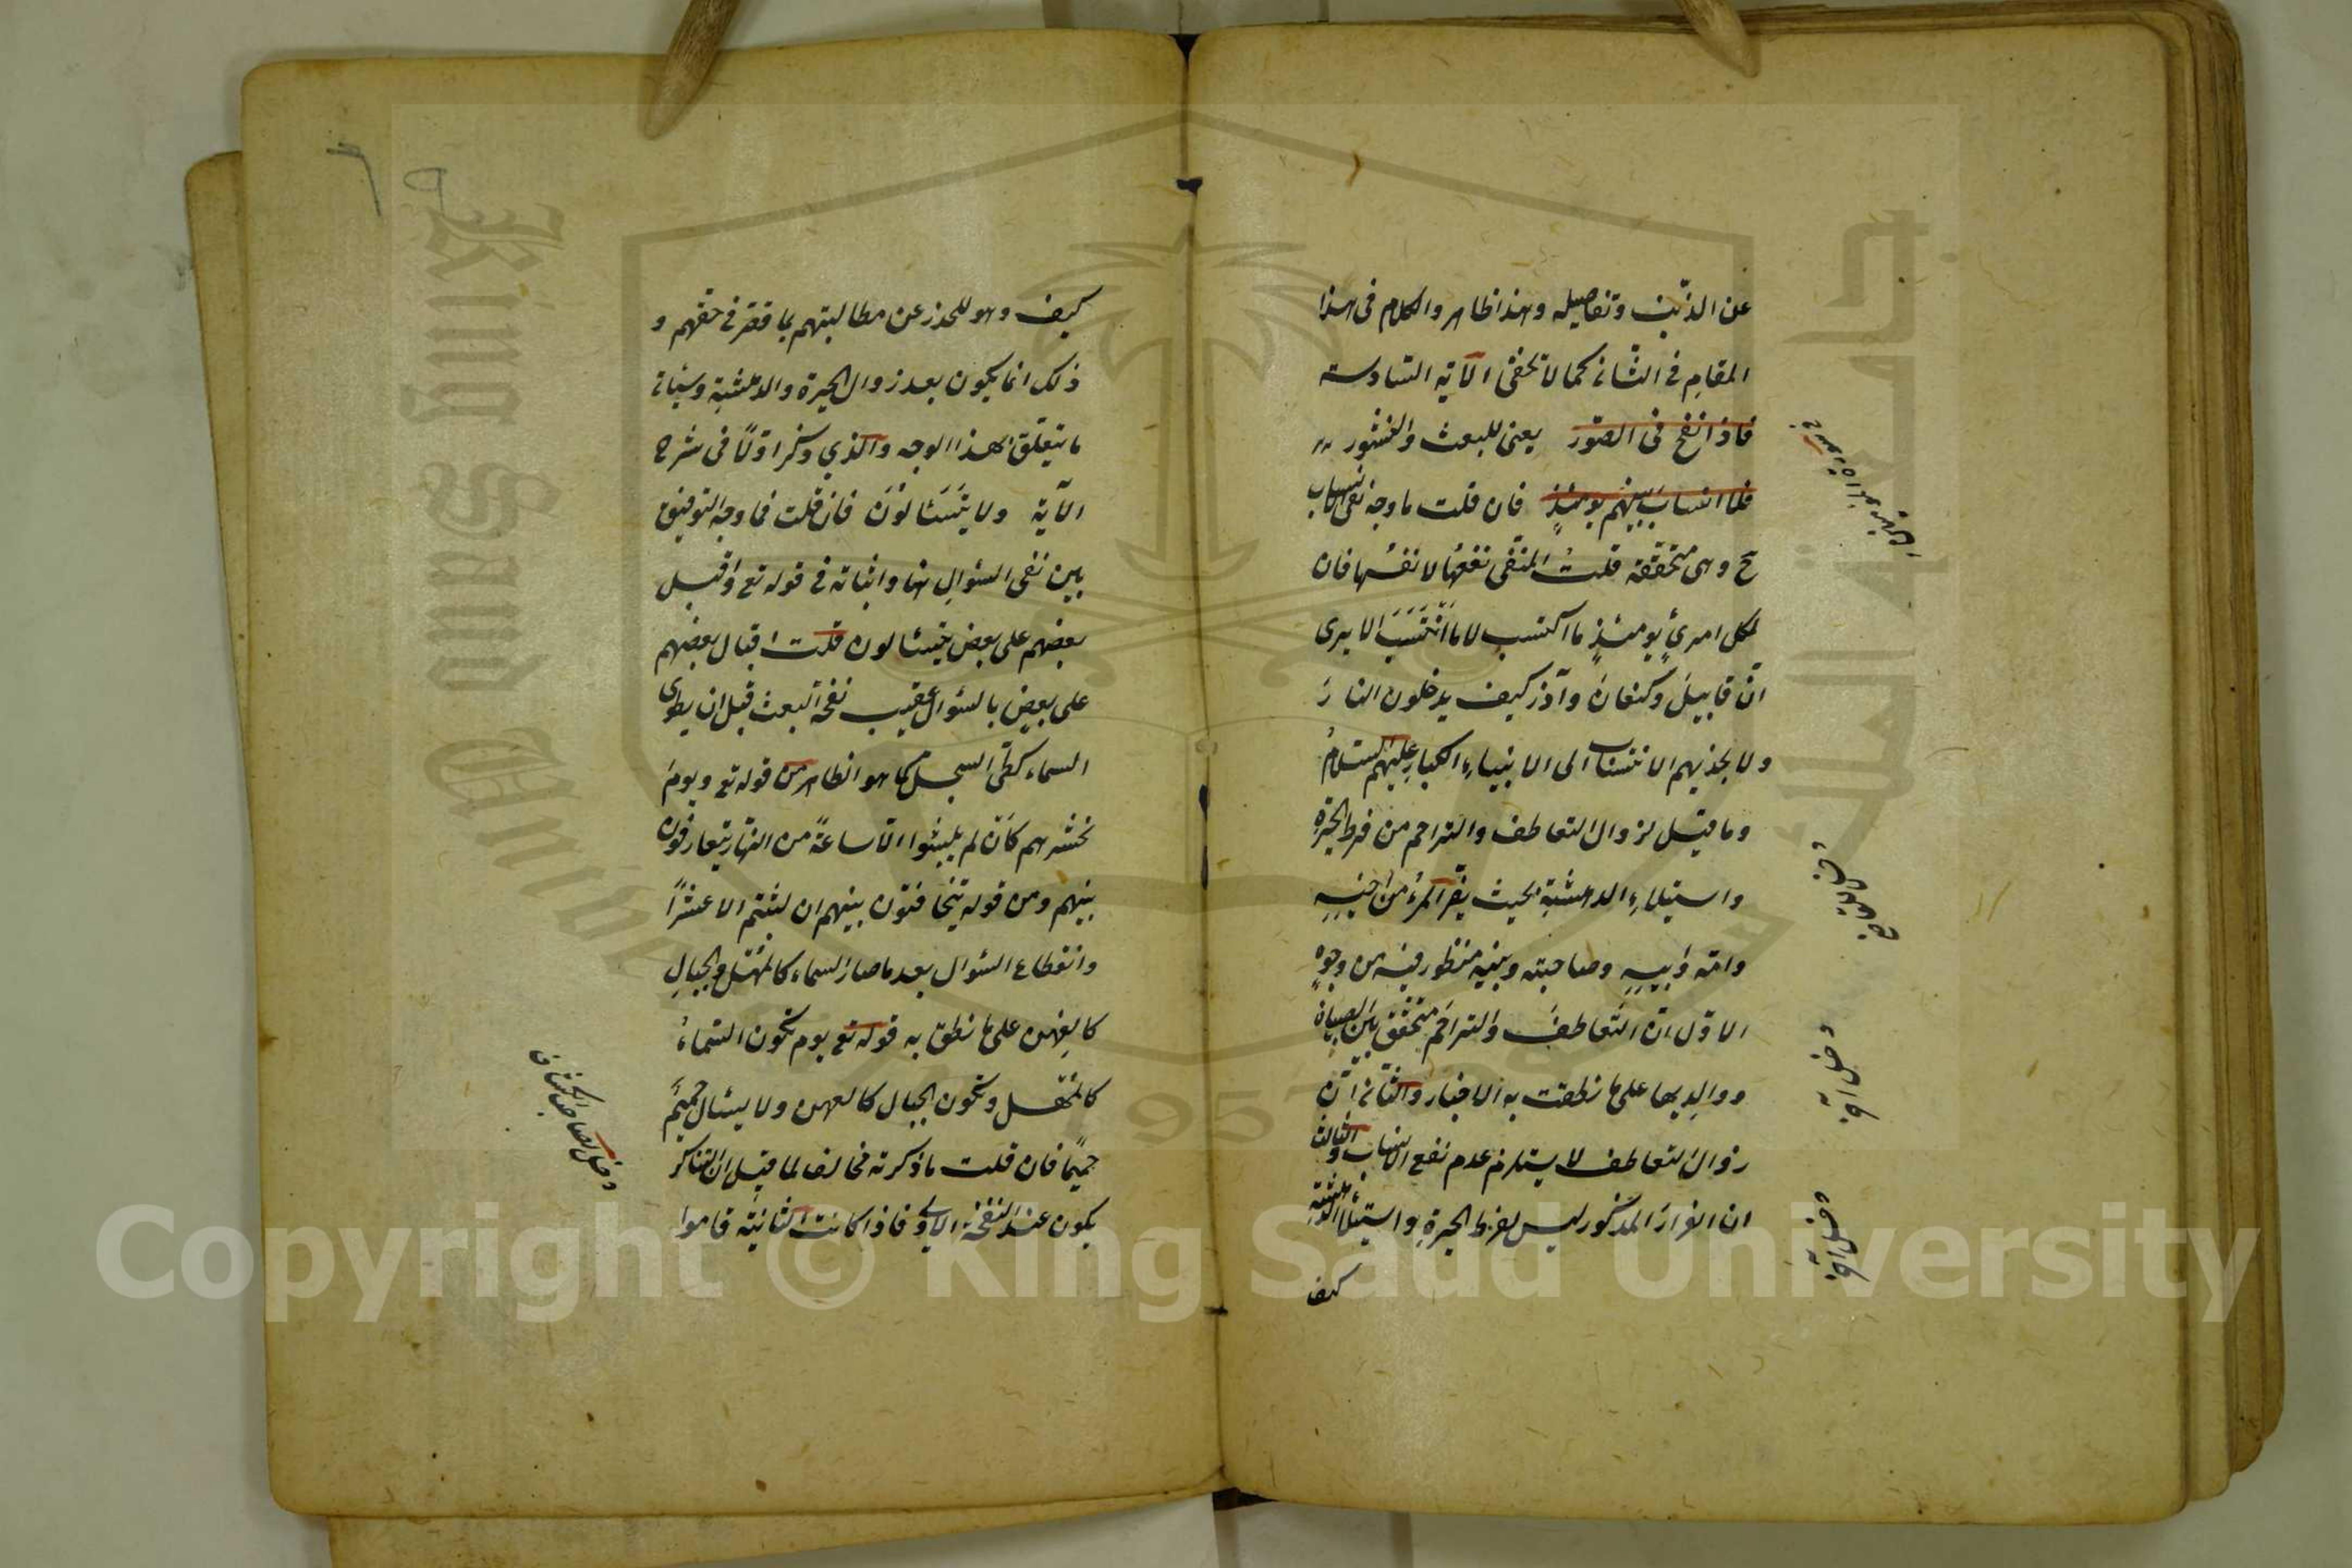 عن الذنب وتفاصيله وهذا ظاهر والكلام فى هذا
المقام فى الثانى كما لا تخفى الآية السادسة
فاذا نفخ فى الصور يعنى للبعث والنشور
فلا انساب بينهم يومئذٍ فان قلت ما وجه نفى الانساب
ح وهى متحققة قلتُ المنفى نفعها لا نفسها فان
لكل امرئٍ يومئذٍ ما اكتسب لا ما انتسب الا يرى
انّ قابيلَ وكنعانَ وآذر كيف يدخلون النارَ
ولا يجذيهم الانتساب الى الانبياءِ الكبار عليهم السلامُ
وما قيل لزوال التعاطف والتراحم من فرط الحيرةِ
واستيلاءِ الدهشة بحيث يفرّ المرءُ من اخيهِ
وامّه وابيهِ وصاحبته وبنيه منظور فيه من وجوهٍ
الاوّل انّ التعاطفَ والتراحمَ متحقق بين الصبيان
ووالديها على ما نطقت به الاخبار والثانى انّ
زوال التعاطف لا يستلزم عدم نفع الانساب والثالث
ان الفرارَ المذكور ليس لفرط الحيرةِ واستيلاء الدهشة
كيف
كيف وهو للحذر عن مطالبتهم بما قصّر فى حقهم و
ذلك انما يكون بعد زوال الحيرة والدهشة وسيأتى
ما يتعلّق بهذا الوجه والذي ذكر اوّلاً فى شرح
الآية ولا يتسَائلونَ فان قلت فما وجه التوفيق
بين نفى السؤالِ هنا واثباته فى قوله تع واقبل
بعضهم على بعض يتسائلون قلت اقبال بعضهم
على بعض بالسؤال عقيب نفخة البعث قبل ان يطوى
السماء كطى السجل كما هو الظاهر من قوله تع ويومَ
نحشرهم كان لم يلبثوا الّا ساعةً من النهار يتعارفون
بينهم ومن قوله يتخافتون بينهم ان لبثتم الا عشراً
وانقطاع السؤال بعد ما صار السماء كالمُهل والجبالِ
كالعِهن على ما نطق به قوله تع يوم تكون السّماءُ
كالمُهل وتكون الجبال كالعهن ولا يسئال حميمٌ
حميمًا فان قلت ما ذكرته مخالف لما قيل ان التناكر
يكون عند النفخة الاولى فاذا كانت الثانيّة قاموا